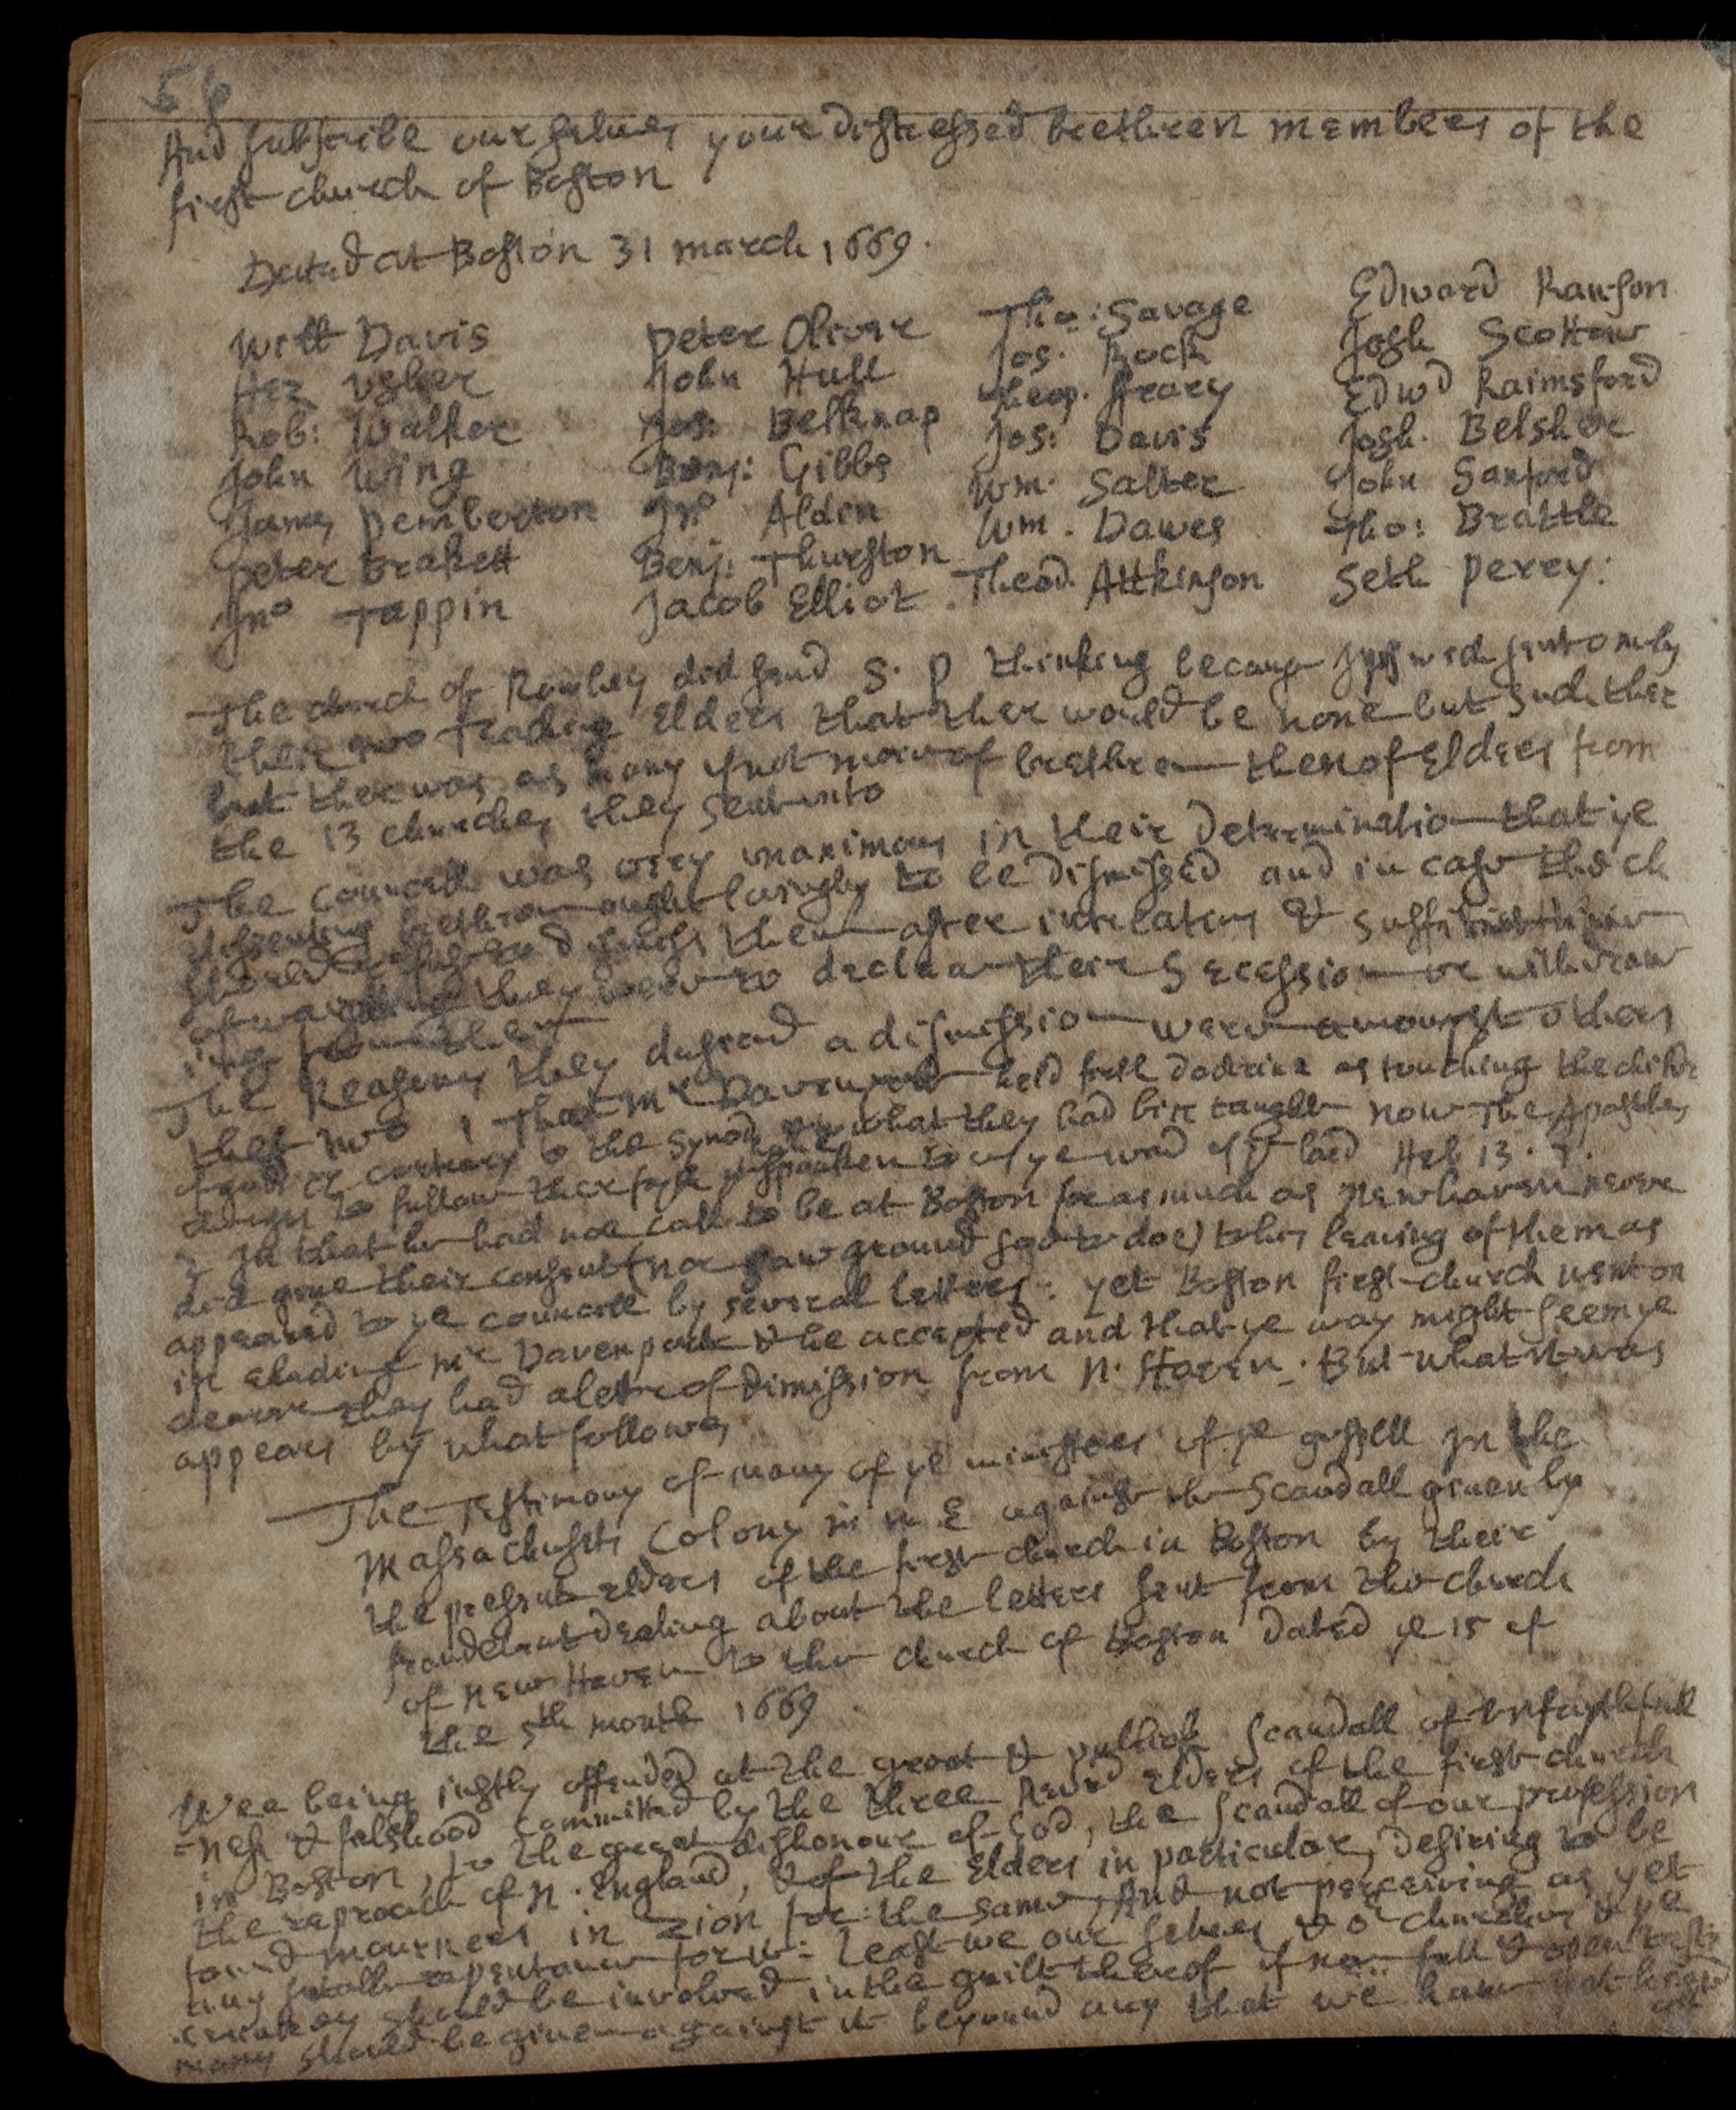 56
And subscribe our selues your distressed brethren members of the
first church of Boston
Dated at Boston 31 march 1669.
Will Davis Peter Oliver Tho: Savage Edward Rawson
Hez Usher John Hull Jos. Rock Josh Scottow
Rob: Walker Jos: Belknap Theop. frary Edwd Raimsford
John Wing Benj: Gibbs Jos: Davis Josh. Belsher
James Pemberton Jno Alden Wm. Salter John Sanford
Peter Brakett Benj: Thurston Wm. Dawes Tho: Brattle
Jno Tappin Jacob Elliot. Theod. Attkinson Seth perry:
The church of Rowley did send S. P thinking because Ipswich sent only
their two Teaching Elders that ther would be none but such ther
but ther was as many if not more of brethren then of Elders from
the 13 churches they sent unto
The councell was very unanimous in their Determination that ye
dissenting brethren ought lovingly to be dismissed and in case the ch
should refuse to dismiss them after intreatys & sufficient time
of waiting they were to declare their Secession or withdraw
ing from them
The Reasons they desired a dismission were amongst others
thes two 1 That Mr Davenport held forth doctrine as touching the childr
of god or contrary to the Synod & what they had bin taught now The Apostles
to follow ther fayth yt spoken to us ye word of ye lord Heb 13. 7.
2 In that he had noe call to be at Boston for as much as Newhaven never
did giue their consent (nor saw ground soe to doe) to his leaving of them as
appeared to ye councell by several letters: yet Boston first church went on
in Electing Mr Davenport & he accepted and that ye way might seem ye
clearer they had a letter of dimission from N. Haven. But what it was
appears by what followes
The Testimony of many of ye ministers of ye gospell In the
Massachusets Colony in N. E against the Scandall giuen by
the present elders of the first church in Boston by their
fraudelent dealing about the letters sent from the church
of New Haven to the church of Boston Dated ye 15 of
the 5th month 1669.
Wee being justly offended at the great & publick Scandall of Unfaythfull
=ness & falshood Committed by the three Revd Elders of the first church
in Boston, to the great dishonour of God, the scandall of our profession
the reproach of N. England, & of the Elders in particular, Desiring to be
found mourners in Zion for the same, And not perceiving as yet
any repentance for it: least we our selves & or churches & ye
should be involved in the guilt thereof if no full & open
should be giuen against it beyond any that we haue not heard